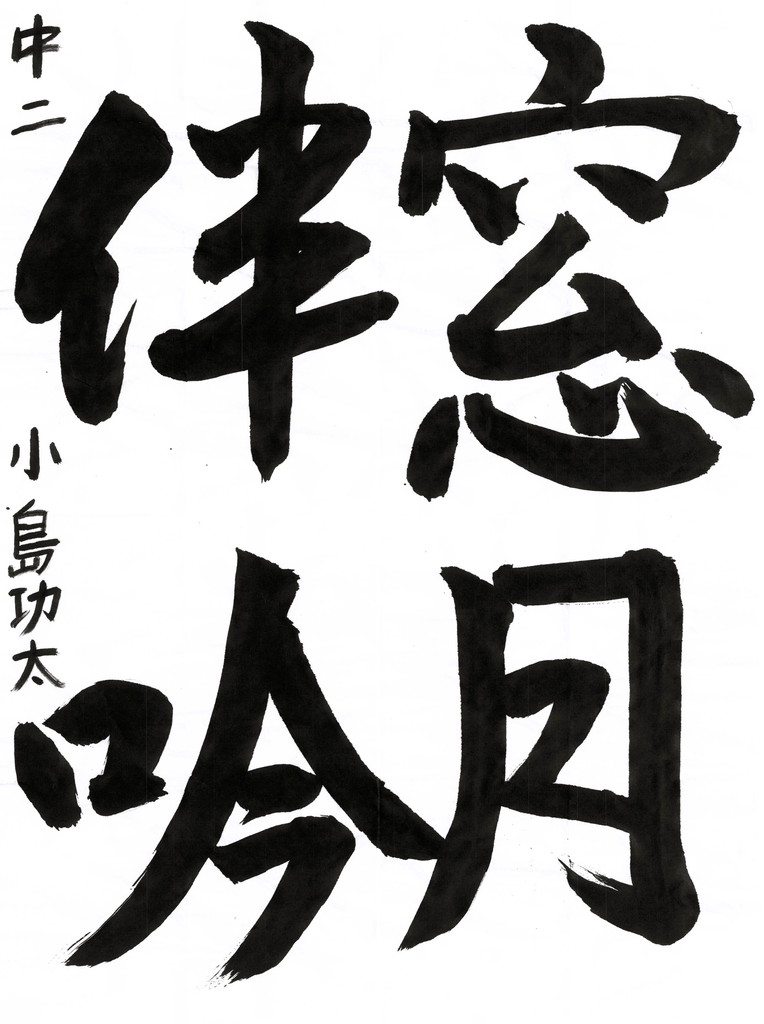 窓月
伴吟
中二 小島功太